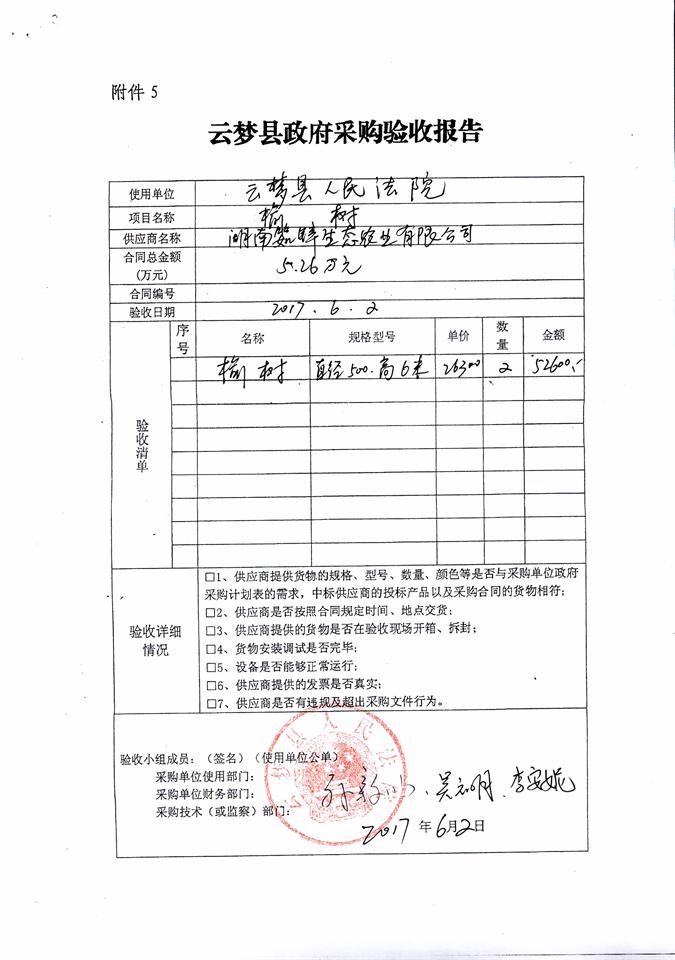 附件 5
云梦县政府采购验收报告
使用单位 云梦县人民法院
项目名称 榆 树
供应商名称 湖南 生态农业有限公司
合同总金额(万元) 5.26万元
合同编号
验收日期 2017.6.2
验收清单
序号 名称 规格型号 单价 数量 金额
榆树 直径500.高6米 26300 2 52600.-
验收详细情况
□1、供应商提供货物的规格、型号、数量、颜色等是否与采购单位政府
采购计划表的需求，中标供应商的投标产品以及采购合同的货物相符；
□2、供应商是否按照合同规定时间、地点交货；
□3、供应商提供的货物是否在验收现场开箱、拆封；
□4、货物安装调试是否完毕；
□5、设备是否能够正常运行；
□6、供应商提供的发票是否真实；
□7、供应商是否有违规及超出采购文件行为。
验收小组成员：（签名）（使用单位公单）
采购单位使用部门：
采购单位财务部门：
采购技术（或监察）部门：
李安妮
2017 年 6月2日
云梦县人民法院